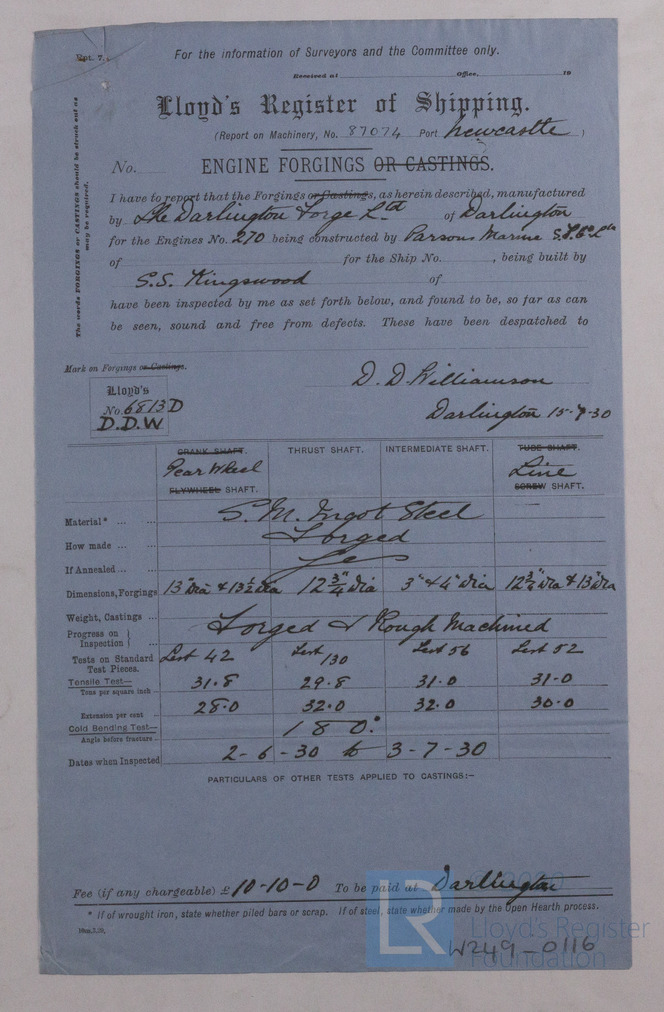 Rpt. 7.
For the information of Surveyors and the Committee only.
Received at Office, 19
Lloyd's Register of Shipping.
(Report on Machinery, No. 87074 Port Newcastle )
No. ENGINE FORGINGS OR CASTINGS.
The words FORGINGS or CASTINGS should be struck out as may be required.
I have to report that the Forgings or Castings, as herein described, manufactured
by The Darlington Forge Ltd of Darlington
for the Engines No. 270 being constructed by Parsons Marine S.T. Co Ltd
of for the Ship No. , being built by
S.S. Kingswood of
have been inspected by me as set forth below, and found to be, so far as can
be seen, sound and free from defects. These have been despatched to
Mark on Forgings or Castings.
D. D. Williamson
Lloyd's
No. 6813 D
D.D.W
Darlington 15-7-30
CRANK SHAFT. THRUST SHAFT. INTERMEDIATE SHAFT. TUBE SHAFT.
Gear Wheel Line
FLYWHEEL SHAFT. SCREW SHAFT.
Material* ... ... S. M. Ingot Steel
How made ... ... Forged
If Annealed ... ... Yes
Dimensions, Forgings 13" Dia & 13½ Dia 12¾" Dia 3" & 4" Dia 12¾" Dia & 13" Dia
Weight, Castings ...
Progress on Inspection } ... Forged & Rough Machined
Tests on Standard Test Pieces. Test 42 Test 130 Test 56 Test 52
Tensile Test—
Tons per square inch 31.8 29.8 31.0 31.0
Extension per cent 28.0 32.0 32.0 30.0
Cold Bending Test—
Angle before fracture 180°
Dates when Inspected 2-6-30 to 3-7-30
PARTICULARS OF OTHER TESTS APPLIED TO CASTINGS:—
Fee (if any chargeable) £10-10-0 To be paid at Darlington
* If of wrought iron, state whether piled bars or scrap. If of steel, state whether made by the Open Hearth process.
LR
Lloyd's Register
Foundation
W249-0116